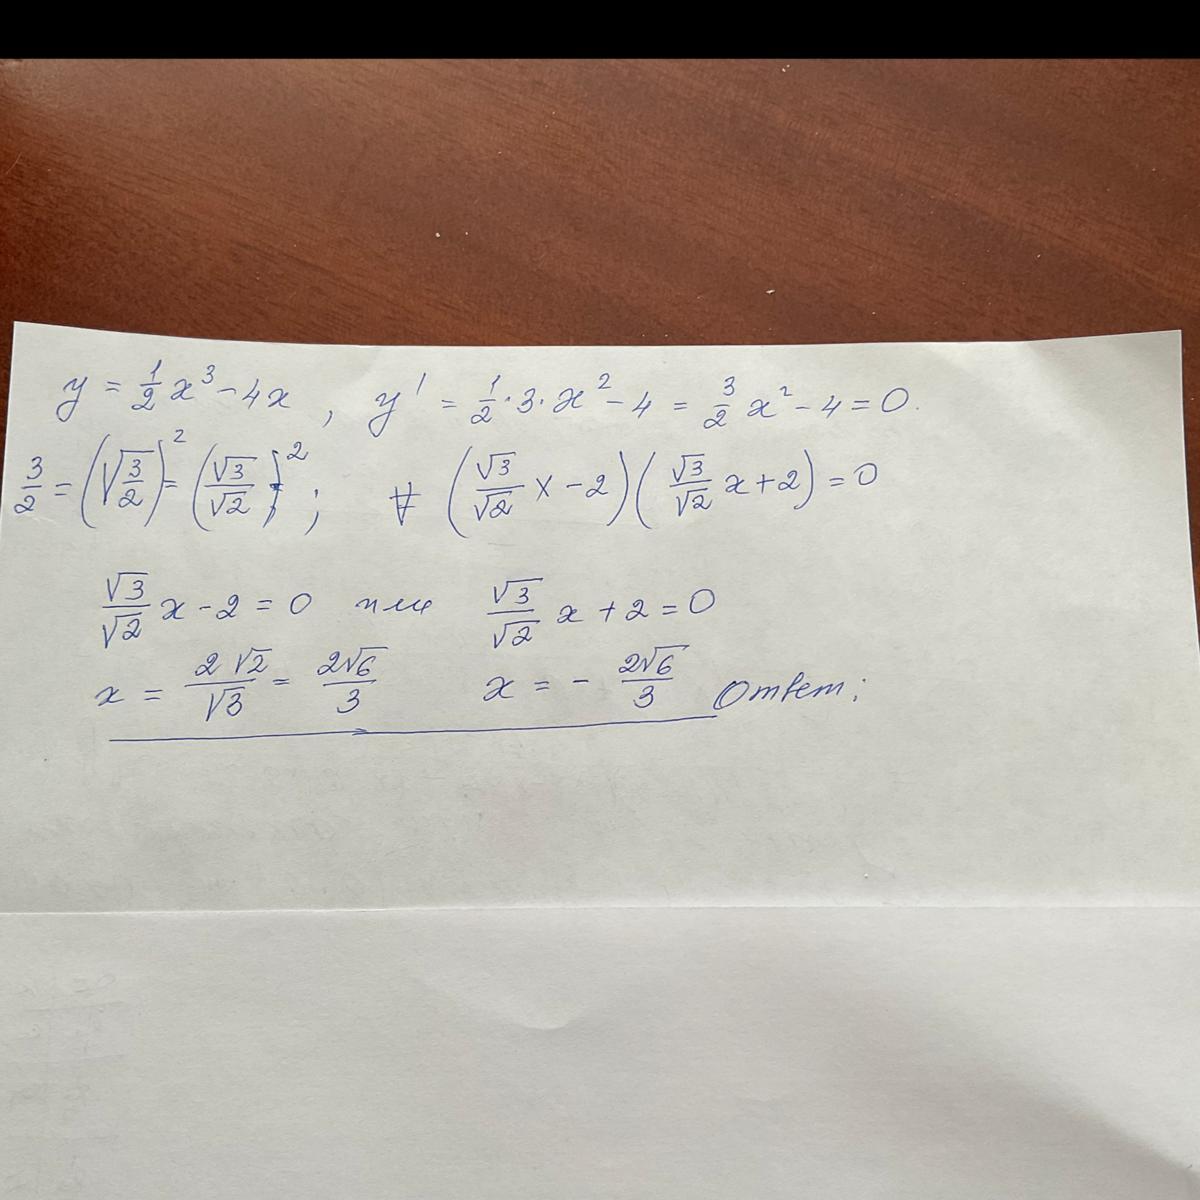 y = 1/2 x³ - 4x , y' = 1/2 · 3 · x² - 4 = 3/2 x² - 4 = 0.
3/2 = (√(3/2))² = (√3/√2)² ; (√3/√2 x - 2)(√3/√2 x + 2) = 0
√3/√2 x - 2 = 0 или √3/√2 x + 2 = 0
x = 2√2/√3 = 2√6/3 x = - 2√6/3 Ответ: